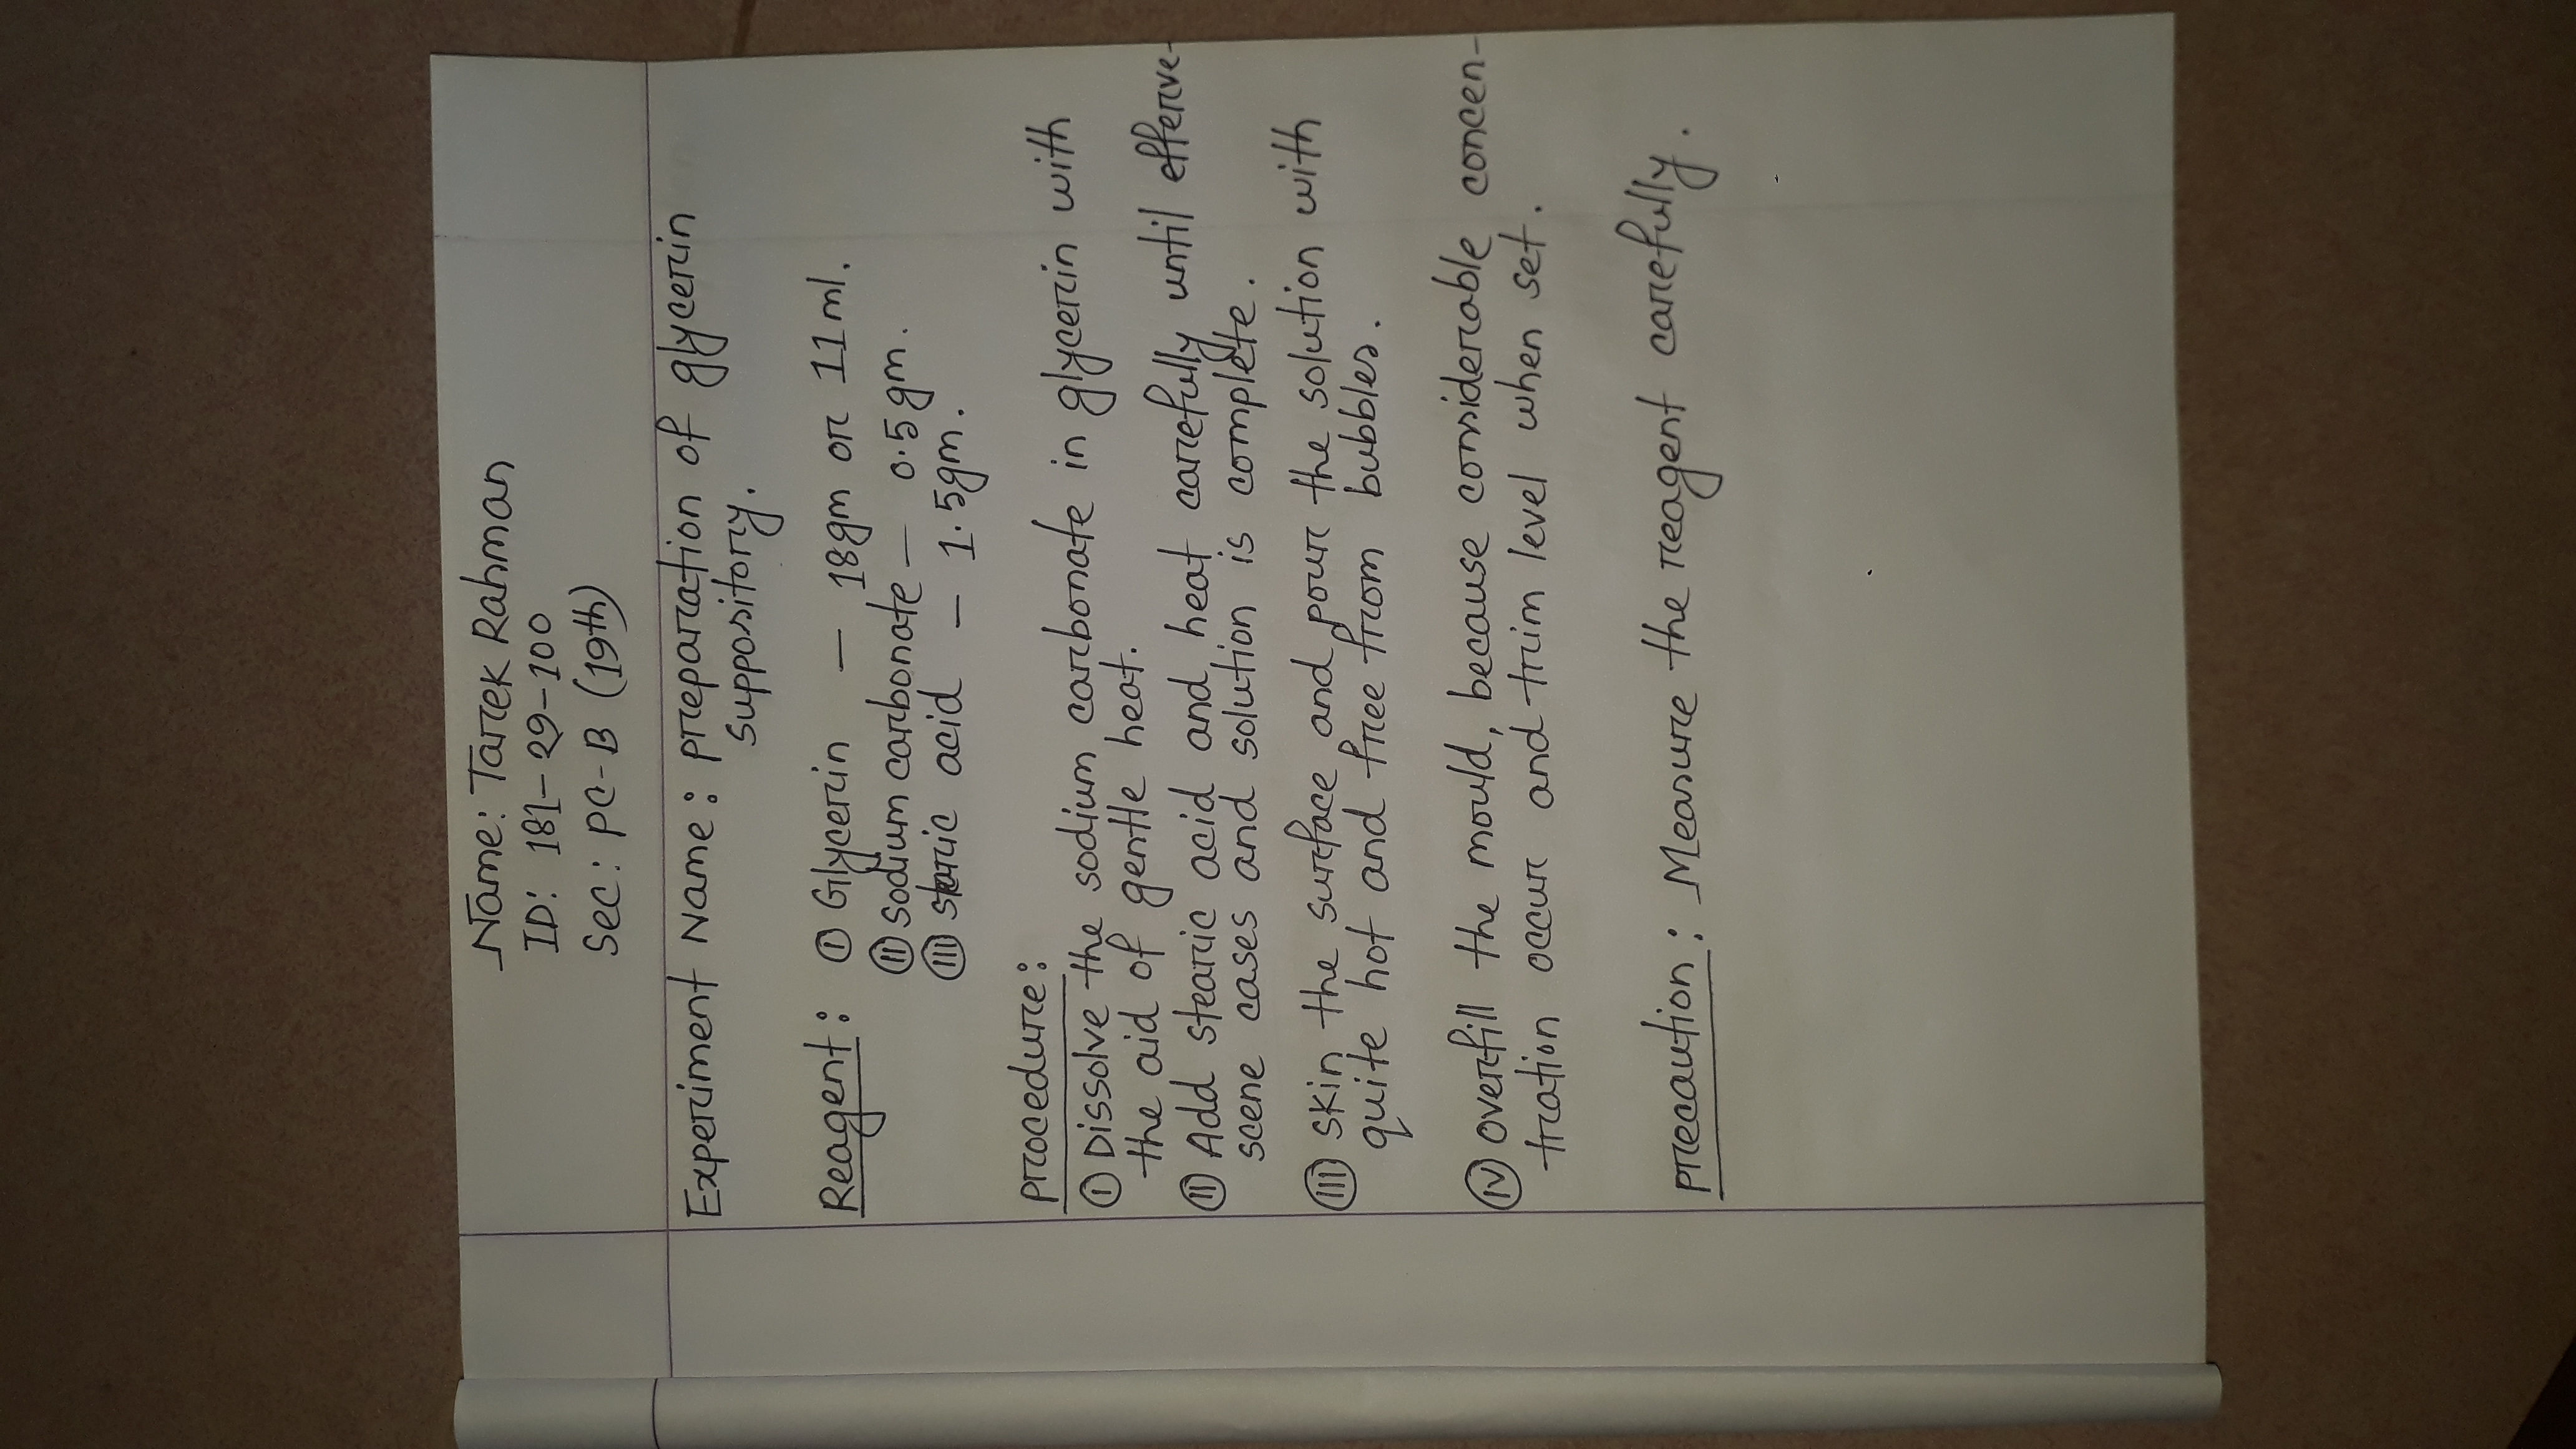 Name: Tarek Rahman
ID: 181-29-100
Sec: PC-B (19th)
Experiment Name: preparation of glycerin
suppository.
Reagent: (I) Glycerin - 18gm or 11ml.
(II) sodium carbonate - 0.5gm.
(III) staric acid - 1.5gm.
procedure:
(I) Dissolve the sodium carbonate in glycerin with
the aid of gentle heat.
(II) Add stearic acid and heat carefully until efferve-
scene cases and solution is complete.
(III) skin the surface and pour the solution with
quite hot and free from bubbles.
(IV) overfill the mould, because considerable concen-
tration occur and trim level when set.
precaution: Measure the reagent carefully.